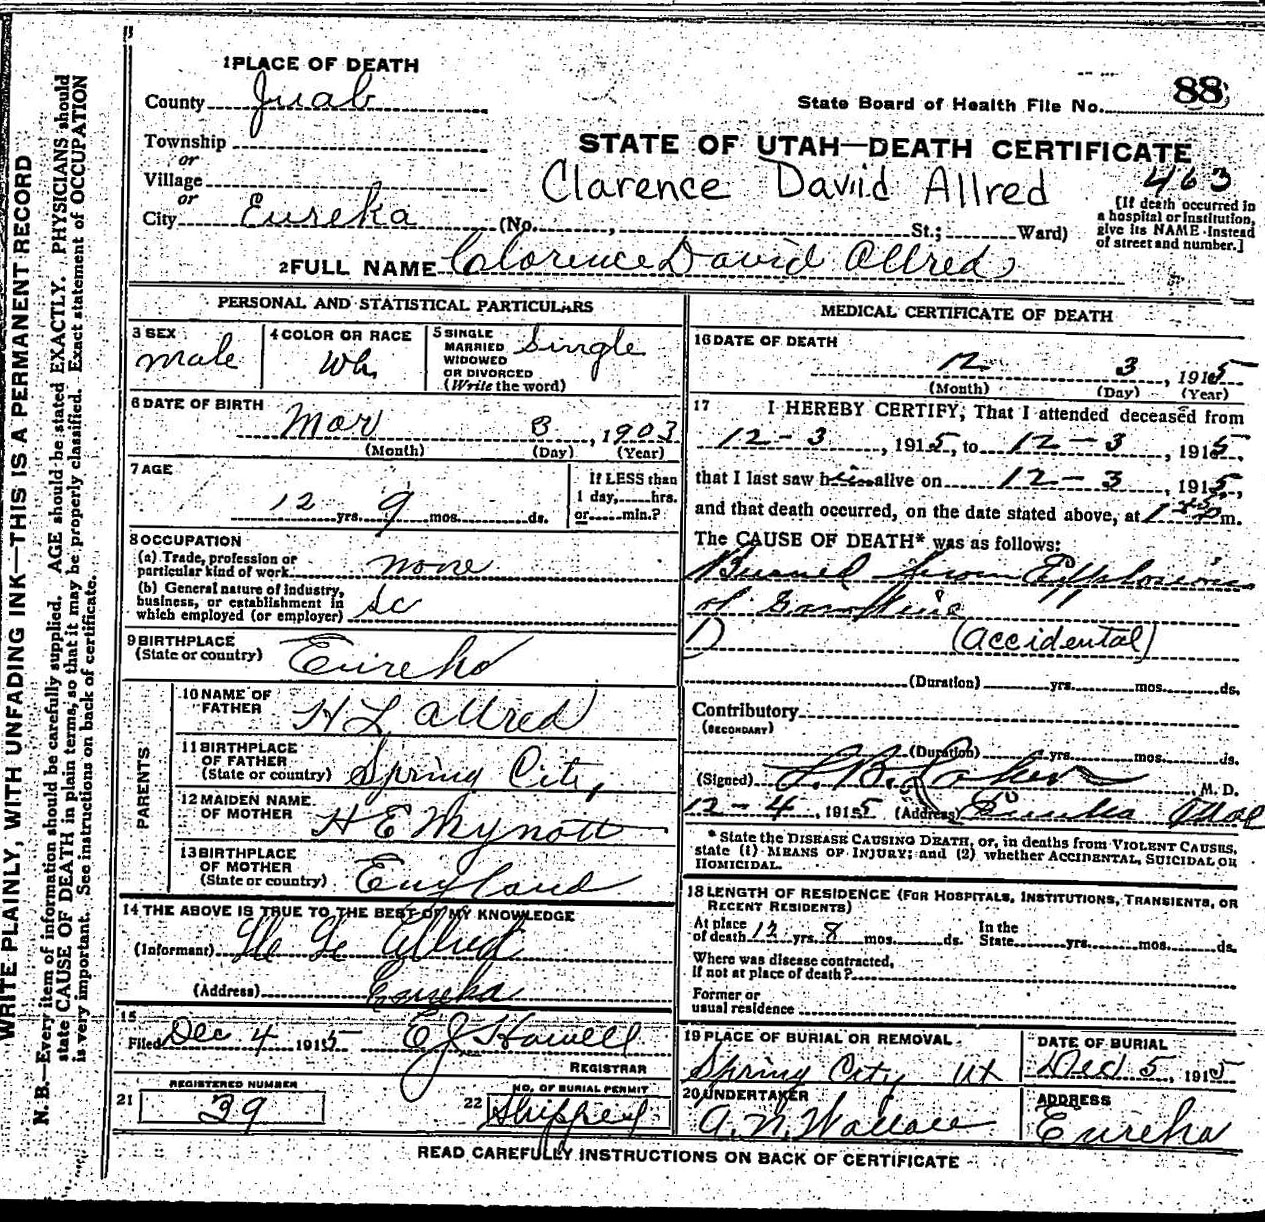 1 PLACE OF DEATH
County Juab
State Board of Health File No. 88
Township
or
Village
or
City Eureka
STATE OF UTAH—DEATH CERTIFICATE
Clarence David Allred
463
(No. , St.; Ward)
[If death occurred in
a hospital or institution,
give its NAME instead
of street and number.]
2 FULL NAME Clarence David Allred
PERSONAL AND STATISTICAL PARTICULARS
3 SEX
male
4 COLOR OR RACE
Wh
5 SINGLE
MARRIED
WIDOWED
OR DIVORCED
(Write the word)
Single
6 DATE OF BIRTH
Mar 3, 1903
(Month) (Day) (Year)
7 AGE
12 yrs. 9 mos. ds.
If LESS than
1 day, hrs.
or min.?
8 OCCUPATION
(a) Trade, profession or
particular kind of work none
(b) General nature of industry,
business, or establishment in
which employed (or employer) Sc
9 BIRTHPLACE
(State or country) Eureka
PARENTS
10 NAME OF
FATHER H L Allred
11 BIRTHPLACE
OF FATHER
(State or country) Spring City
12 MAIDEN NAME
OF MOTHER H E Mynott
13 BIRTHPLACE
OF MOTHER
(State or country) England
14 THE ABOVE IS TRUE TO THE BEST OF MY KNOWLEDGE
(Informant) Allred
(Address) Eureka
15
Filed Dec 4 1915 E J Howell
REGISTRAR
21 REGISTERED NUMBER
39
22 NO. OF BURIAL PERMIT
Shipped
MEDICAL CERTIFICATE OF DEATH
16 DATE OF DEATH
12 3, 1915
(Month) (Day) (Year)
17 I HEREBY CERTIFY, That I attended deceased from
12-3, 1915, to 12-3, 1915,
that I last saw him alive on 12-3, 1915,
and that death occurred, on the date stated above, at m.
The CAUSE OF DEATH* was as follows:
Burned from Explosion
of
(Accidental)
(Duration) yrs. mos. ds.
Contributory
(SECONDARY)
(Duration) yrs. mos. ds.
(Signed) M. D.
12-4, 1915 (Address) Eureka Utah
* State the DISEASE CAUSING DEATH, or, in deaths from VIOLENT CAUSES,
state (1) MEANS OF INJURY; and (2) whether ACCIDENTAL, SUICIDAL OR
HOMICIDAL.
18 LENGTH OF RESIDENCE (FOR HOSPITALS, INSTITUTIONS, TRANSIENTS, OR
RECENT RESIDENTS)
At place
of death 12 yrs. 8 mos. ds.
In the
State yrs. mos. ds.
Where was disease contracted,
if not at place of death?
Former or
usual residence
19 PLACE OF BURIAL OR REMOVAL
Spring City Ut
DATE OF BURIAL
Dec 5, 1915
20 UNDERTAKER
A. N. Wallace
ADDRESS
Eureka
READ CAREFULLY INSTRUCTIONS ON BACK OF CERTIFICATE
WRITE PLAINLY, WITH UNFADING INK—THIS IS A PERMANENT RECORD
N. B.—Every item of information should be carefully supplied. AGE should be stated EXACTLY. PHYSICIANS should
state CAUSE OF DEATH in plain terms, so that it may be properly classified. Exact statement of OCCUPATION
is very important. See instructions on back of certificate.